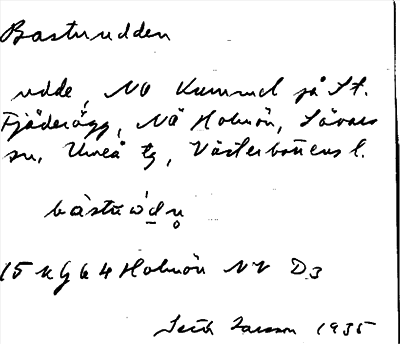 Bastuudden
udde, NO Kummel på St.
Fjäderägg, Nö Holmön, Sävars
sn, Umeå tg, Västerbottens l.
bàstuòdn̥
15 K 9 b 4 Holmön NV D3
Larsson 1935